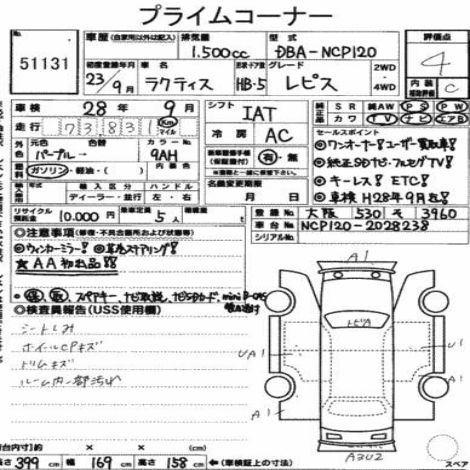 プライムコーナー
51131
車歴 (自家用以外は記入)
排気量 1.500cc
型式 DBA-NCP120
評価点 4
初度登録年月 23/9月
車名 ラクティス
形状・ドア数 HB・5
グレード レピス
2WD・4WD
内装 C
車検 28年 9月
シフト IAT
純正 S R 純AW P S P W
カワ T V ナビ エアB
走行 73831 Km マイル
冷房 AC
セールスポイント
ワンオーナー!ユーザー買取車!
外色 元色 パープル→ 色替 カラーNo. 9AH
純正SDナビ・フルセグTV!
燃料 ガソリン・軽油・( )
有・無
キーレス! ETC!
輸入区分 ハンドル
ディーラー・並行 左・右
名義変更期限 月 日
車検H28年9月迄!
リサイクル預託金 10.000円
乗車定員 5人
登録No. 大阪 530 モ 3960
車台No. NCP120-2028238
シリアルNo.
注意事項 (修復・不具合箇所および状態等)
ウィンカーミラー!
★AA初出品!!
スペアキー、ナビ取説、ナビSDカード、
検査員報告 (USS使用欄)
シートしみ
ホイールCPキズ
トリムキズ
ルーム内一部汚れ
A1
UA1
A1
A1
A1
A3U2
スペア
長さ 399 (cm) 幅 169 (cm) 高さ 158 (cm) ←(車検証上の寸法)